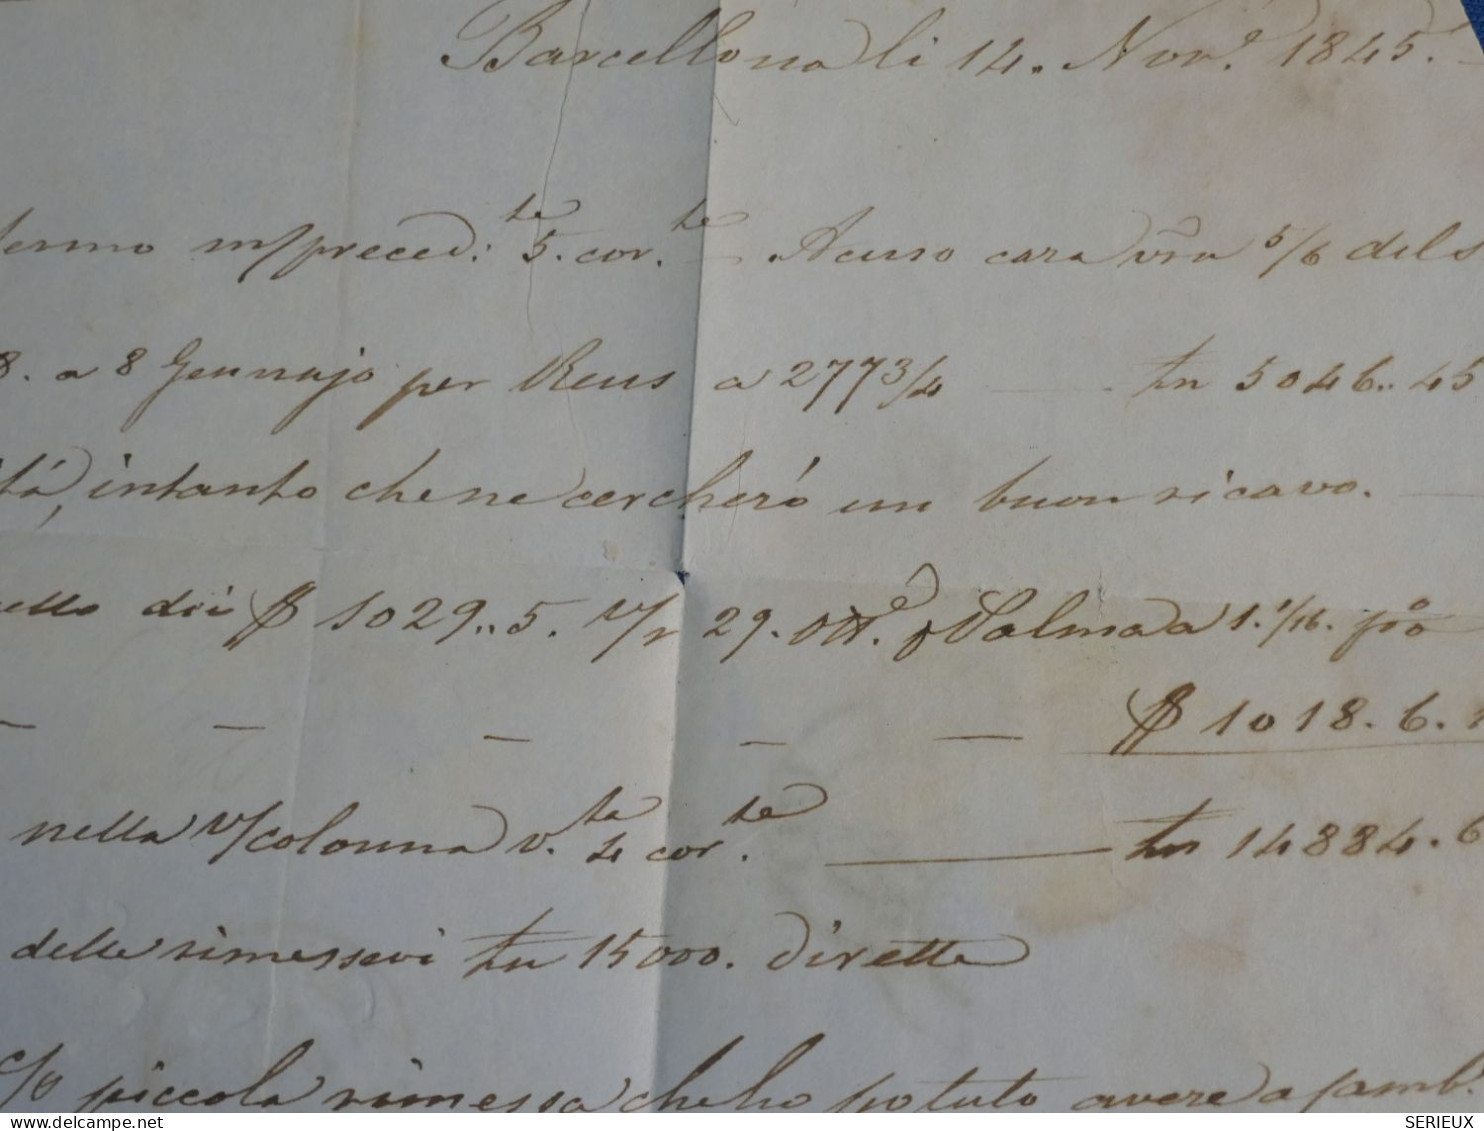 Barcellona li 14. Nov.e 1845.
fermo m/preced:te 5. cor.te Acuso cara vra 5/6 dels
8. a 8 Gennajo per Reus a 277 3/4 fn 5046.. 45
tá, intanto che ne cercheró un buon ricavo.
dei $ 1029.. 5. v/r 29. Ott.e p Palma a 1. 1/16. pṍo
$ 1018. 6.
nella v/colonna v.ta 4 cor.te fn 14884. 6
delle rimessevi fn 15000. dirette
c/o piccola rimessa che ho potuto avere a
SERIEUX